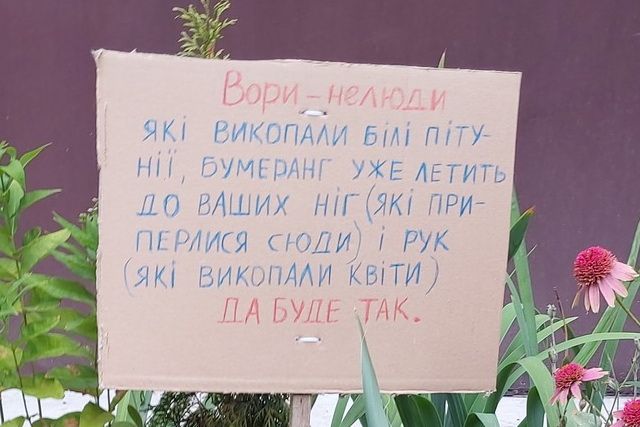 Вори – нелюди
ЯКІ ВИКОПАЛИ БІЛІ ПІТУ-
НІЇ, БУМЕРАНГ УЖЕ ЛЕТИТЬ
ДО ВАШИХ НІГ (ЯКІ ПРИ-
ПЕРЛИСЯ СЮДИ) І РУК
(ЯКІ ВИКОПАЛИ КВІТИ)
ДА БУДЕ ТАК.